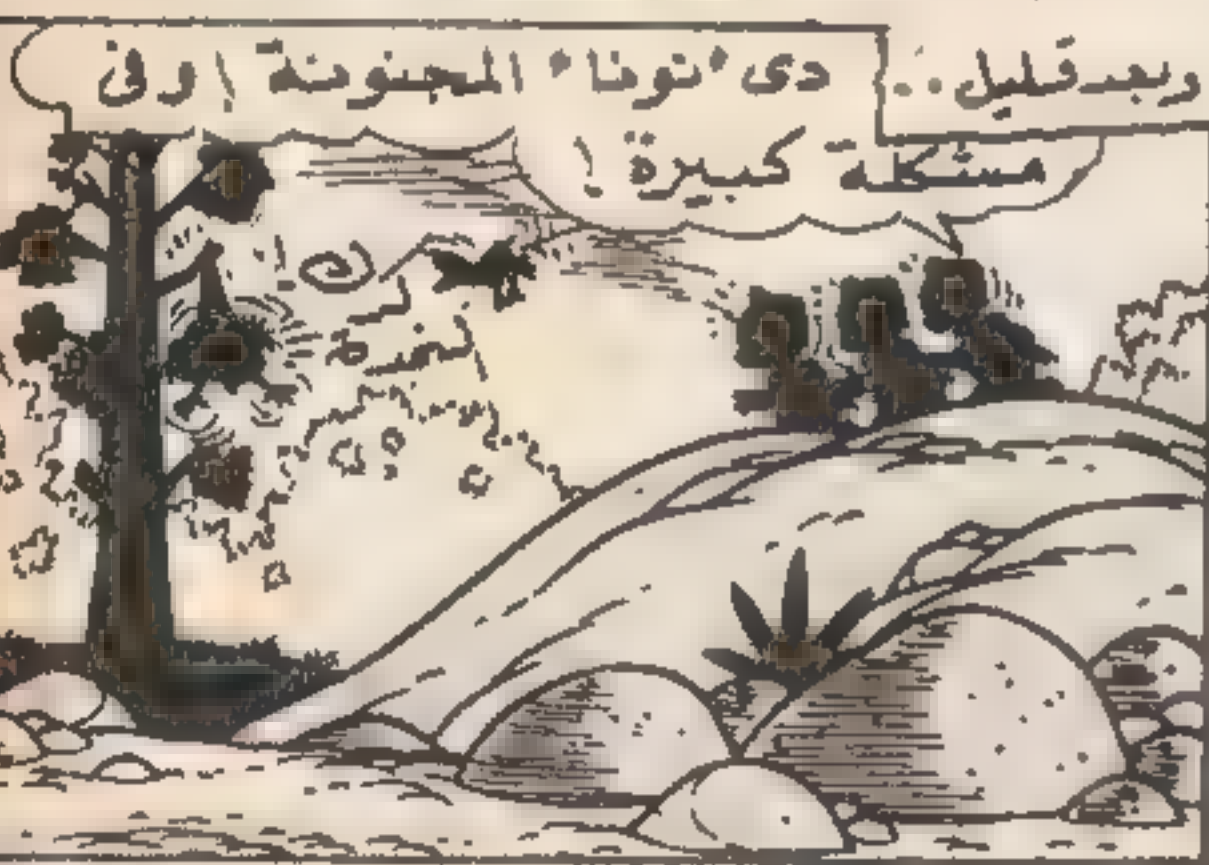 وبعد قليل..
دى "نونا" المجنونة! وفى
مشكلة كبيرة!